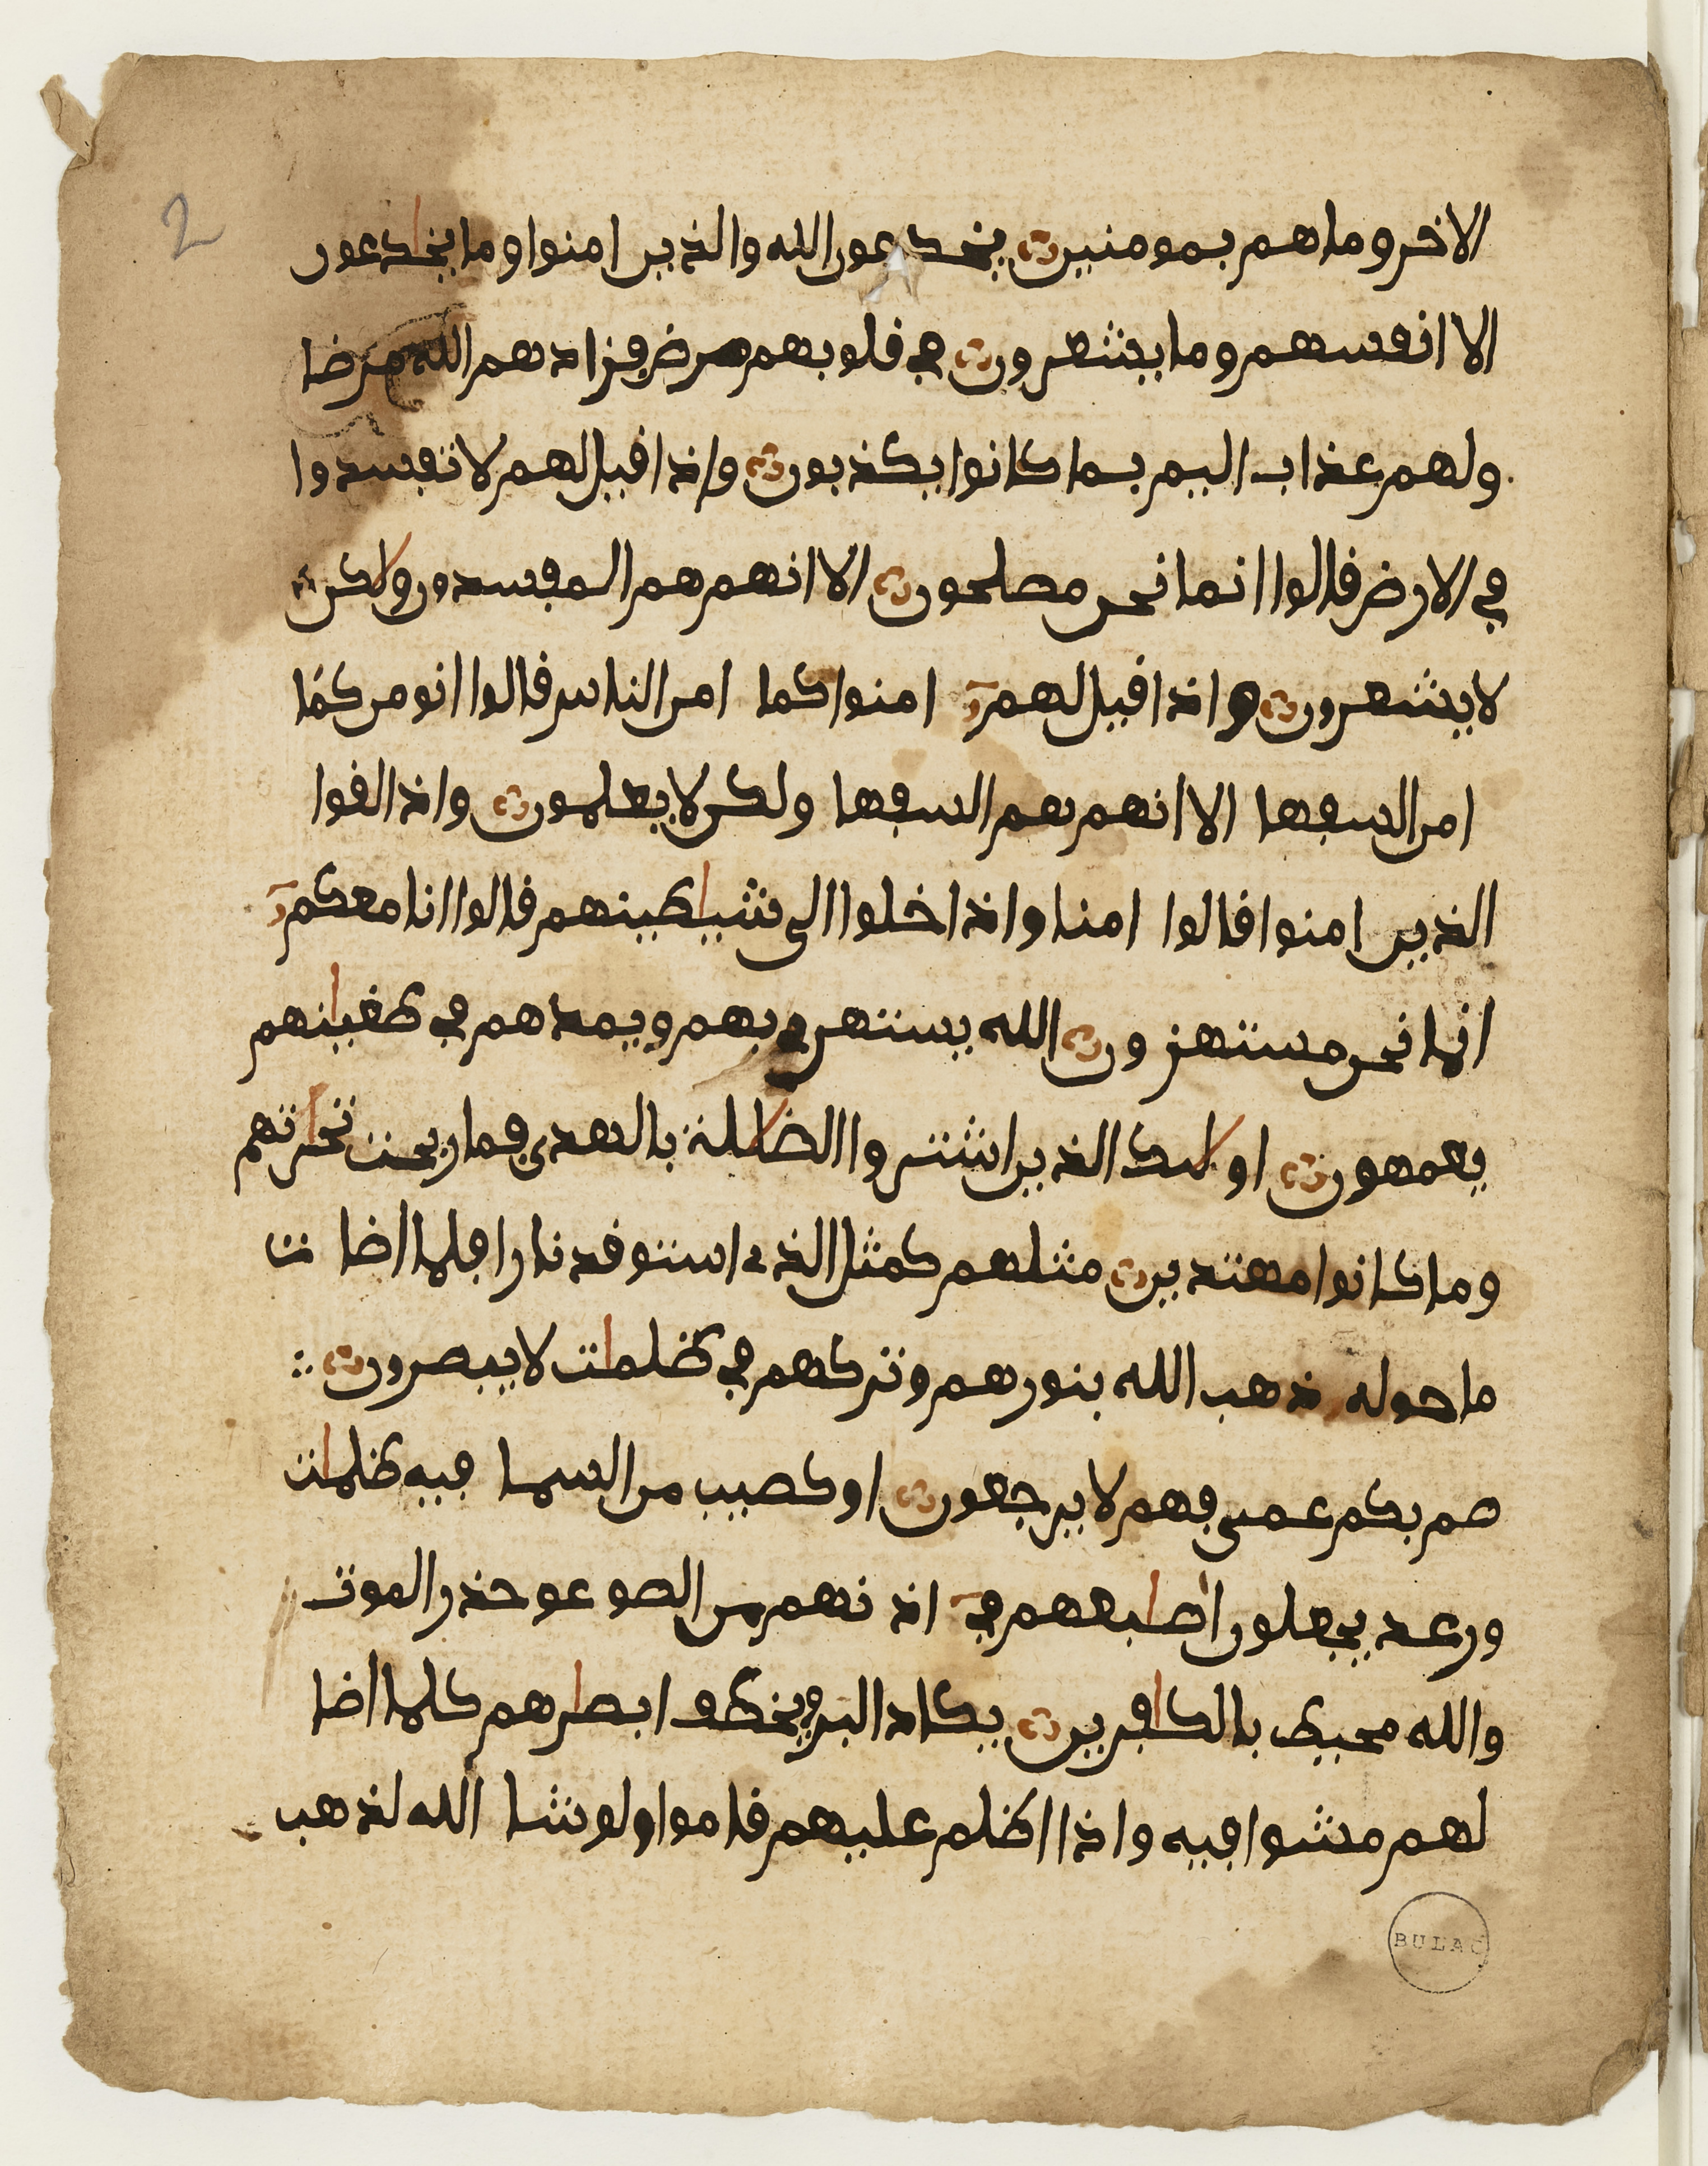 2
الاخر وما هم بمومنين يخدعون الله والذين امنوا وما يخادعون
الا انفسهم وما يشعرون في قلوبهم مرض فزادهم الله مرضا
ولهم عذاب اليم بما كانوا يكذبون واذا قيل لهم لا تفسدوا
في الارض قالوا انما نحن مصلحون الا انهم هم المفسدون ولاكن
لا يشعرون واذا قيل لهم امنوا كما امن الناس قالوا انومن كما
امن السفها الا انهم هم السفها ولكن لا يعلمون واذا لقوا
الذين امنوا قالوا امنا واذا خلوا الى شياطينهم قالوا انا معكم
انما نحن مستهزون الله يستهزي بهم ويمدهم في طغيانهم
يعمهون اولايك الذين اشتروا الضلالة بالهدى فما ربحت تجارتهم
وما كانوا مهتدين مثلهم كمثل الذي استوقد نارا فلما اضات
ما حوله ذهب الله بنورهم وتركهم في ظلمات لا يبصرون
صم بكم عمي فهم لا يرجعون او كصيب من السما فيه ظلمات
ورعد يجعلون اصابعهم في اذنهم من الصوعق حذر الموت
والله محيط بالكافرين يكاد البرق يخطف ابصارهم كلما اضا
لهم مشوا فيه واذا اظلم عليهم قاموا ولو شا الله لذهب
BULAC